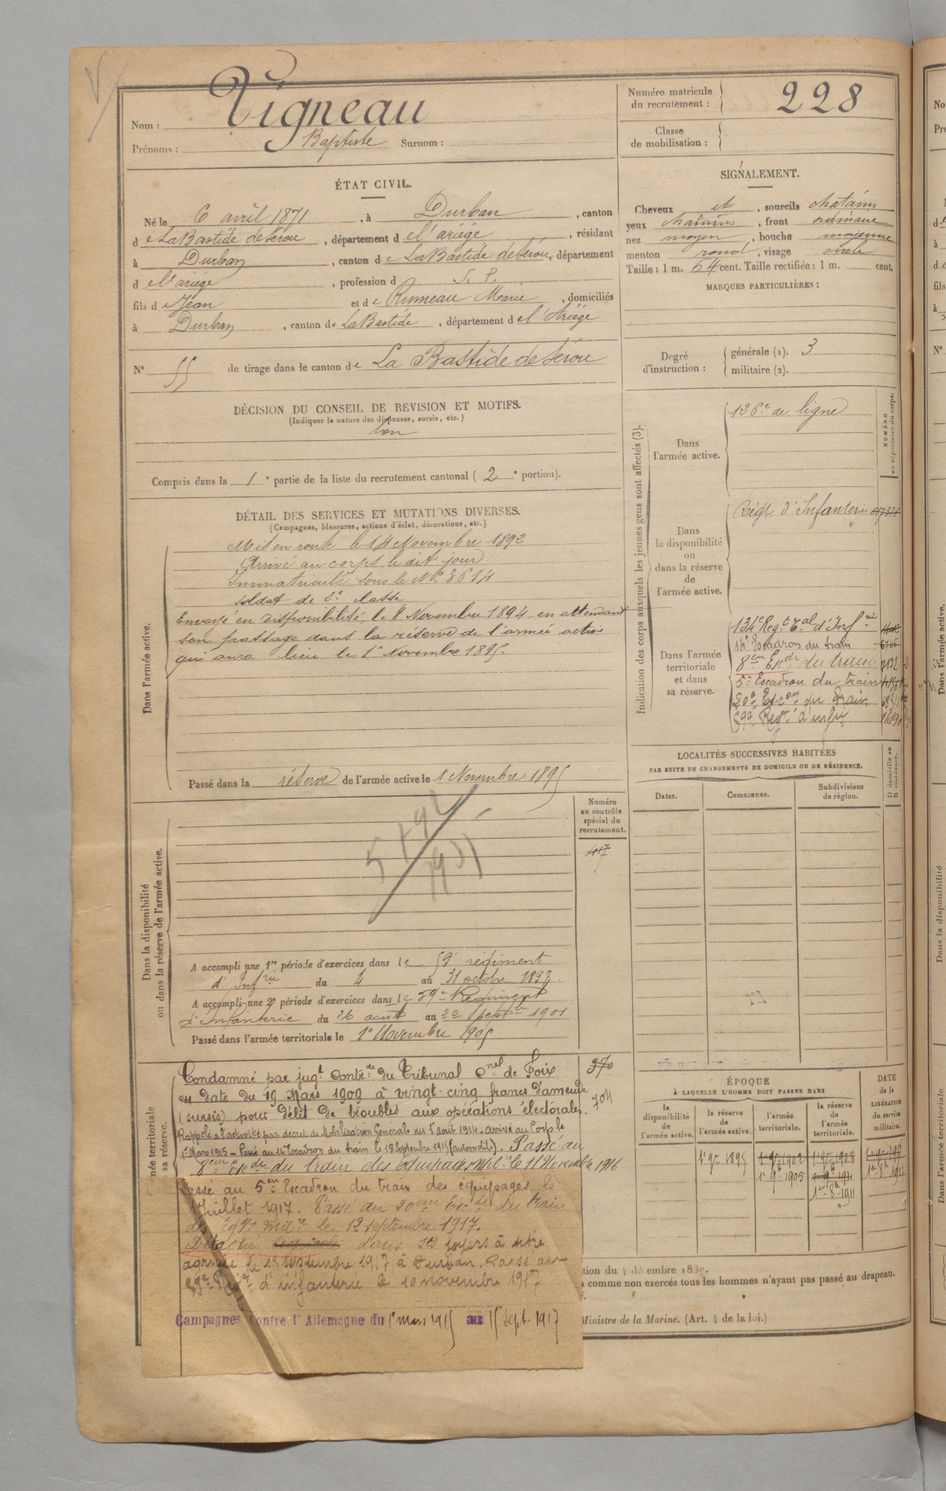 Nom : Vigneau
Prénoms : Baptiste Surnom :
Numéro matricule
du recrutement : 228
Classe
de mobilisation :
ÉTAT CIVIL.
Né le 6 avril 1871, à Durban, canton
de La Bastide de Sérou, département de l'ariège, résidant
à Durban, canton de La Bastide de Sérou, département
de l'ariège, profession d S. P.
fils de Jean et de Marie, domiciliés
à Durban, canton de La Bastide, département de l'Ariège
N° 55 de tirage dans le canton de La Bastide de Sérou
SIGNALEMENT.
Cheveux et, sourcils chatains
yeux chatains, front ordinaire
nez moyen, bouche moyenne
menton rond, visage ovale
Taille : 1 m. 64 cent. Taille rectifiée : 1 m. cent.
MARQUES PARTICULIÈRES :
Degré
d'instruction :
générale (1). 3
militaire (2).
DÉCISION DU CONSEIL DE REVISION ET MOTIFS.
(Indiquer la nature des dispenses, sursis, etc.)
bon
Compris dans la 1e partie de la liste du recrutement cantonal (2e portion).
DÉTAIL DES SERVICES ET MUTATIONS DIVERSES.
(Campagnes, blessures, actions d'éclat, décorations, etc.)
Dans l'armée active.
Mis en route le 14 Novembre 1892
Arrivé au corps le dit jour
Immatriculé sous le N° 3614
soldat de 2e classe
Envoyé en disponibilité le 8 Novembre 1894 en attendant
son passage dans la réserve de l'armée active
qui aura lieu le 1er Novembre 1895.
Passé dans la réserve de l'armée active le 1 Novembre 1895
Indication des corps auxquels les jeunes gens sont affectés (3).
NUMÉRO
au répertoire du corps.
Dans
l'armée active.
126e de ligne
Dans
la disponibilité
ou
dans la réserve
de
l'armée active.
Régt d'Infanterie
Dans l'armée
territoriale
et dans
sa réserve.
134e Regt tal d'Infie
Escadron du train
8eme Eron du train
5e Escadron du train
20e Escon du Train
Regt d'infie
LOCALITÉS SUCCESSIVES HABITÉES
PAR SUITE DE CHANGEMENTS DE DOMICILE OU DE RÉSIDENCE.
Dates.
Communes.
Subdivisions
de région.
Numéro
au contrôle
spécial du
recrutement.
Dans la disponibilité
ou dans la réserve de l'armée active.
A accompli une 1re période d'exercices dans le 59e régiment
d'Infrie du 4 au 31 octobre
A accompli une 2e période d'exercices dans le 59e Régiment
d'Infanterie du 26 août au 22 Septbre 1901
Passé dans l'armée territoriale le 1er Novembre 1905
370
704
Condamné par jugt contre du Tribunal Cnel de Foix
en date du 19 Mars 1909 à vingt-cinq francs d'amende
(sursis) pour délit de troubles aux opérations électorales.
Rappelé à l'activité par décret de Mobilisation Générale du 1er août 1914. arrivé au Corps le
1er Mars 1915 — Passé au Escadron du train le 18 Septembre 1915 (automobile). Passé au
8eme Eron du train des équipages mil. le 11 Novembre 1916
Passé au 5eme Escadron du train des équipages le
Juillet 1917. Passé au 20eme Eron du train
des éqges mires le 12 septembre 1917.
Détaché dans ses foyers à titre
agricole le 15 septembre 1917 à Durban. Passé au
Regt d'infanterie le 10 novembre 1917
Campagnes contre l'Allemagne du 1er mars 1915 au 15 Sept. 1917
ÉPOQUE
À LAQUELLE L'HOMME DOIT PASSER DANS
la
disponibilité
de
l'armée active.
la réserve
de
l'armée active.
l'armée
territoriale.
la réserve
de
l'armée
territoriale.
DATE
de la
LIBÉRATION
du service
militaire.
1er 9bre 1895
1er 9bre 1905
1er 8bre 1911
comme non exercés tous les hommes n'ayant pas passé au drapeau.
Ministre de la Marine. (Art. 4 de la loi.)